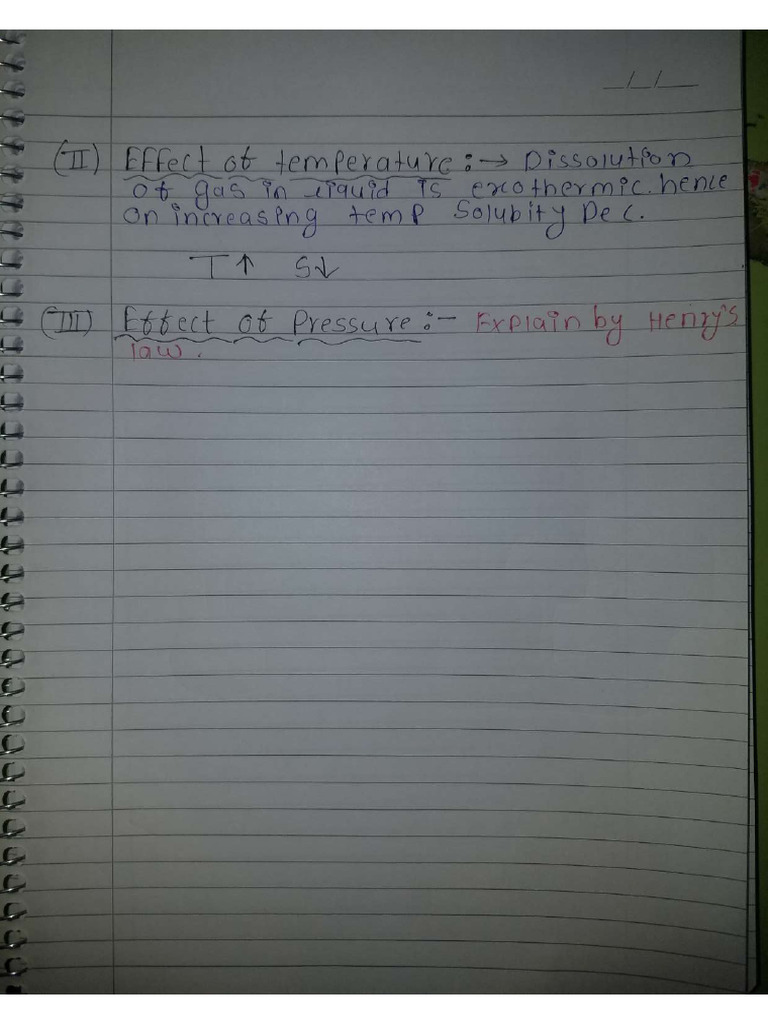 _/_/__
(II) Effect of temperature :→ Dissolution
of gas in liquid is exothermic. hence
on increasing temp Solubity Dec.
T↑ S↓
(III) Effect of Pressure :- Explain by Henry's
law.